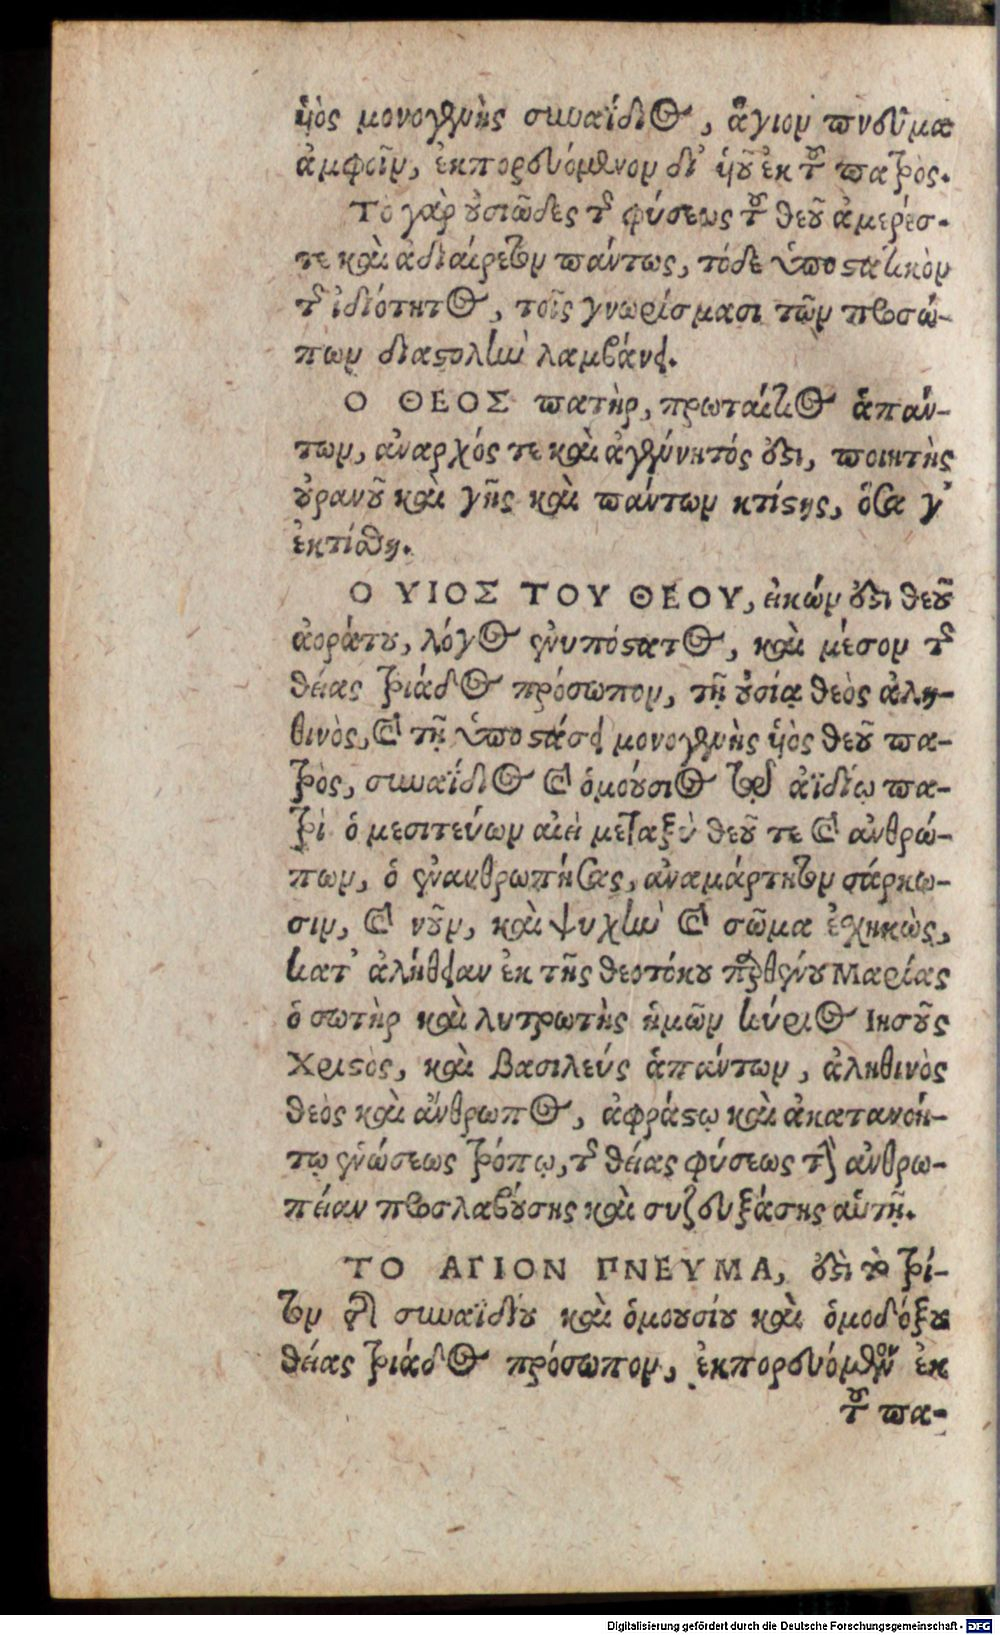 ὑὸς μονογενὴς συναΐδιος, ἅγιον πνεῦμα
ἀμφοῖν, ἐκπορευόμενον δι’ ὑοῦ ἐκ τοῦ πατρὸς.
Τὸ γὰρ οὐσιῶδες τῆς φύσεως τοῦ θεοῦ ἀμερές-
τε καὶ ἀδιαίρετον πάντως, τόδε ὑποστατικὸν
τῆς ἰδιότητος, τοῖς γνωρίσμασι τῶν προσώ-
πων διαστολὴν λαμβάνει.
Ο ΘΕΟΣ πατὴρ, πρωταίτιος ἁπάν-
των, ἀναρχός τε καὶ ἀγέννητός ἐστι, ποιητὴς
οὐρανοῦ καὶ γῆς καὶ πάντων κτίστης, ὅσα γ’
ἐκτίσθη.
Ο ΥΙΟΣ ΤΟΥ ΘΕΟΥ, εἰκών ἐστι θεοῦ
ἀοράτου, λόγος ἐνυπόστατος, καὶ μέσον τῆς
θείας τριάδος πρόσωπον, τῇ οὐσίᾳ θεὸς ἀλη-
θινὸς, καὶ τῇ ὑποστάσει μονογενὴς ὑὸς θεοῦ πα-
τρὸς, συναΐδιος καὶ ὁμούσιος τῷ αϊδίῳ πα-
τρὶ ὁ μεσιτεύων αἰεὶ μεταξὺ θεοῦ τε καὶ ἀνθρώ-
πων, ὁ ἐνανθρωπήσας, ἀναμάρτητον σάρκω-
σιν, καὶ νοῦν, καὶ ψυχὴν καὶ σῶμα ἐσχηκὼς,
κατ’ ἀλήθειαν ἐκ τῆς θεοτόκου παρθένου Μαρίας
ὁ σωτὴρ καὶ λυτρωτὴς ἡμῶν κύριος Ἰησοῦς
Χριστὸς, καὶ βασιλεύς ἁπάντων, ἀληθινὸς
θεὸς καὶ ἄνθρωπος, ἀφράστῳ καὶ ἀκατανοή-
τῳ ἑνώσεως τρόπῳ, τῆς θείας φύσεως τὴν ἀνθρω-
πείαν προσλαβούσης καὶ συζευξάσης αὑτῇ.
ΤΟ ΑΓΙΟΝ ΠΝΕΥΜΑ, ἐστὶ τὸ τρί-
τον τῆς συναϊδίου καὶ ὁμουσίου καὶ ὁμοδόξου
θείας τριάδος πρόσωπον, ἐκπορευόμενον ἐκ
τοῦ πα-
Digitalisierung gefördert durch die Deutsche Forschungsgemeinschaft - DFG